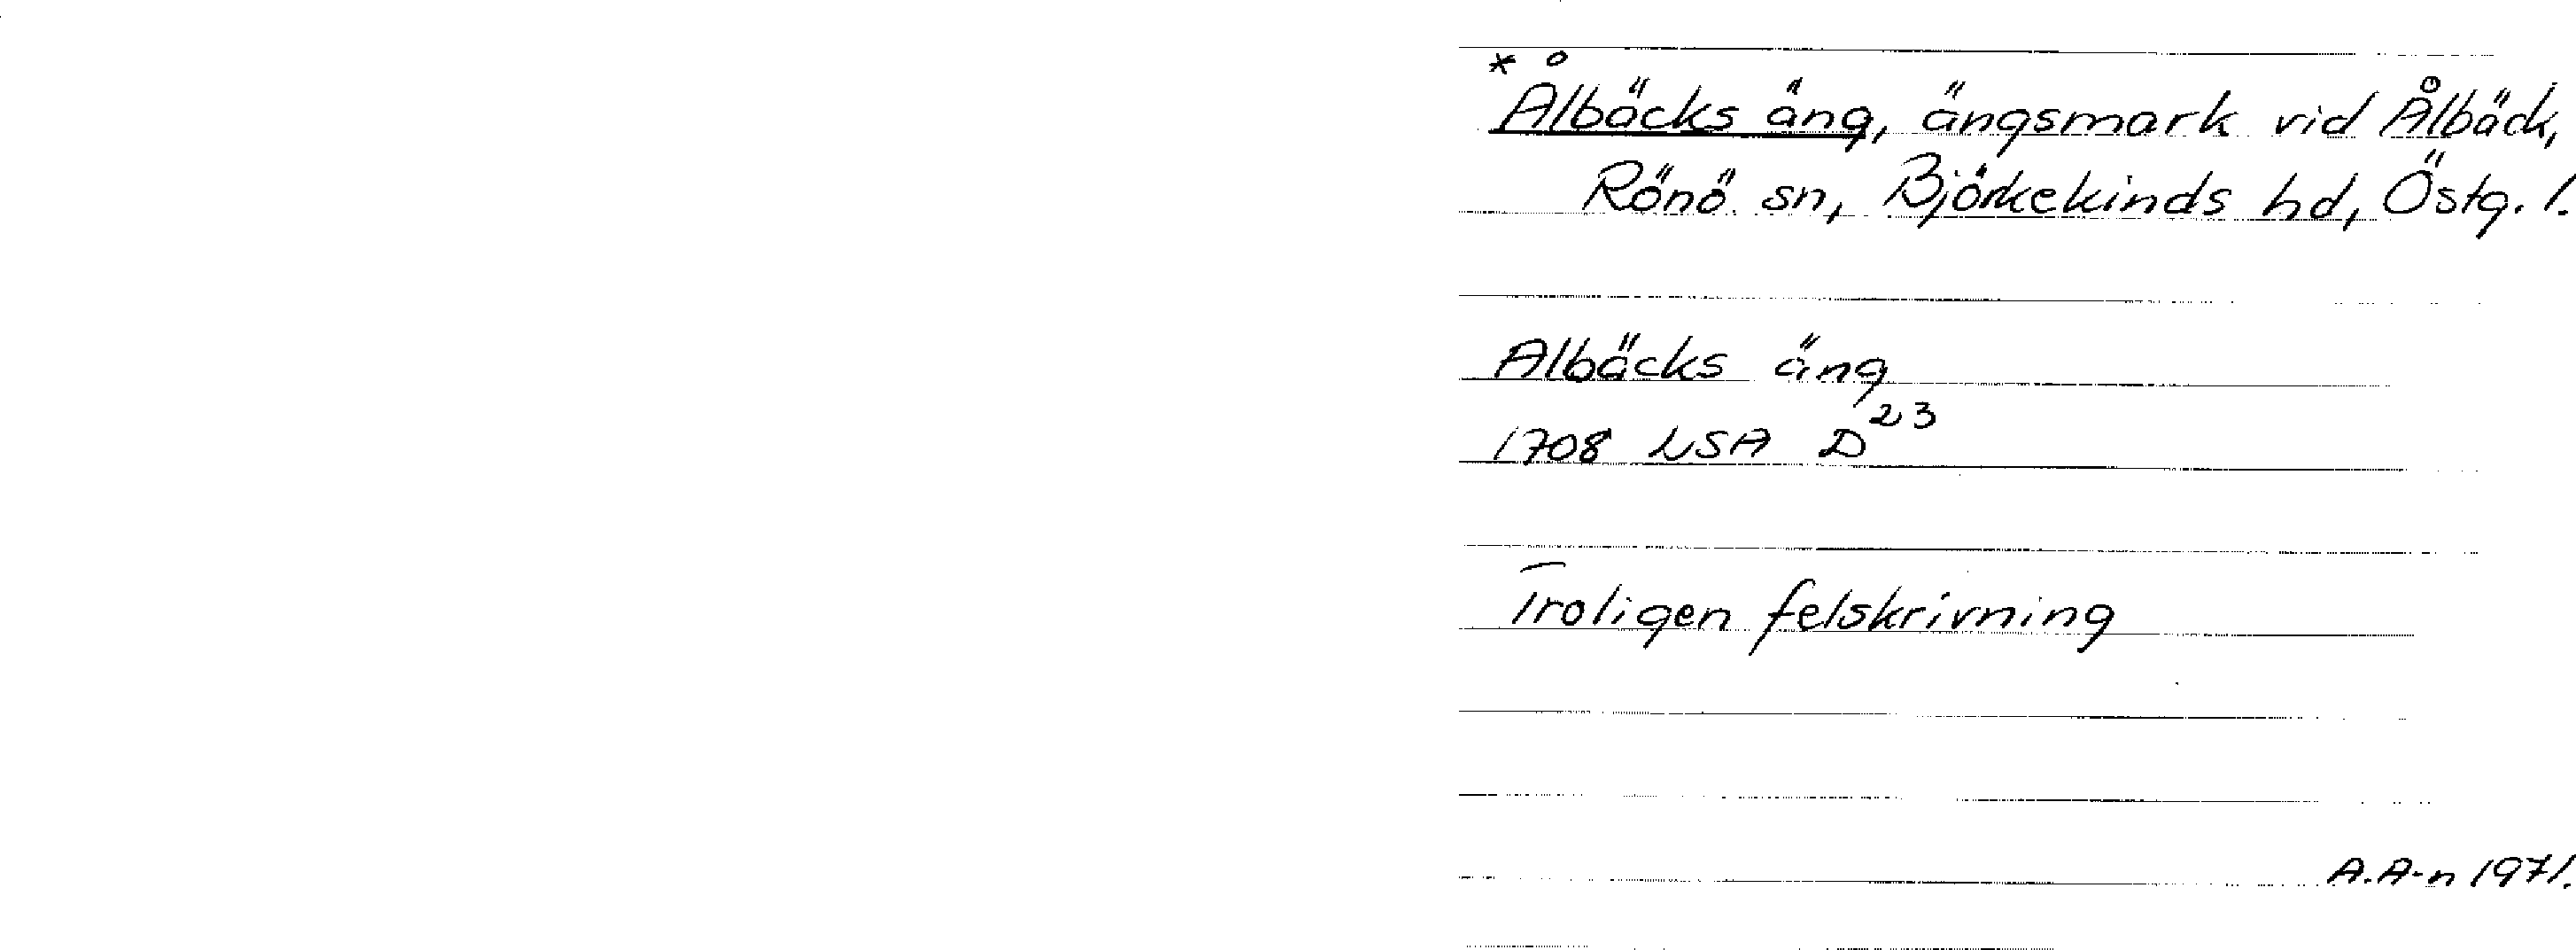 * Ålbäcks äng, ängsmark vid Ålbäck,
Rönö sn, Björkekinds hd, Östg. l.
Albäcks äng
1708 LSA D²³
Troligen felskrivning
A.A-n 1971.